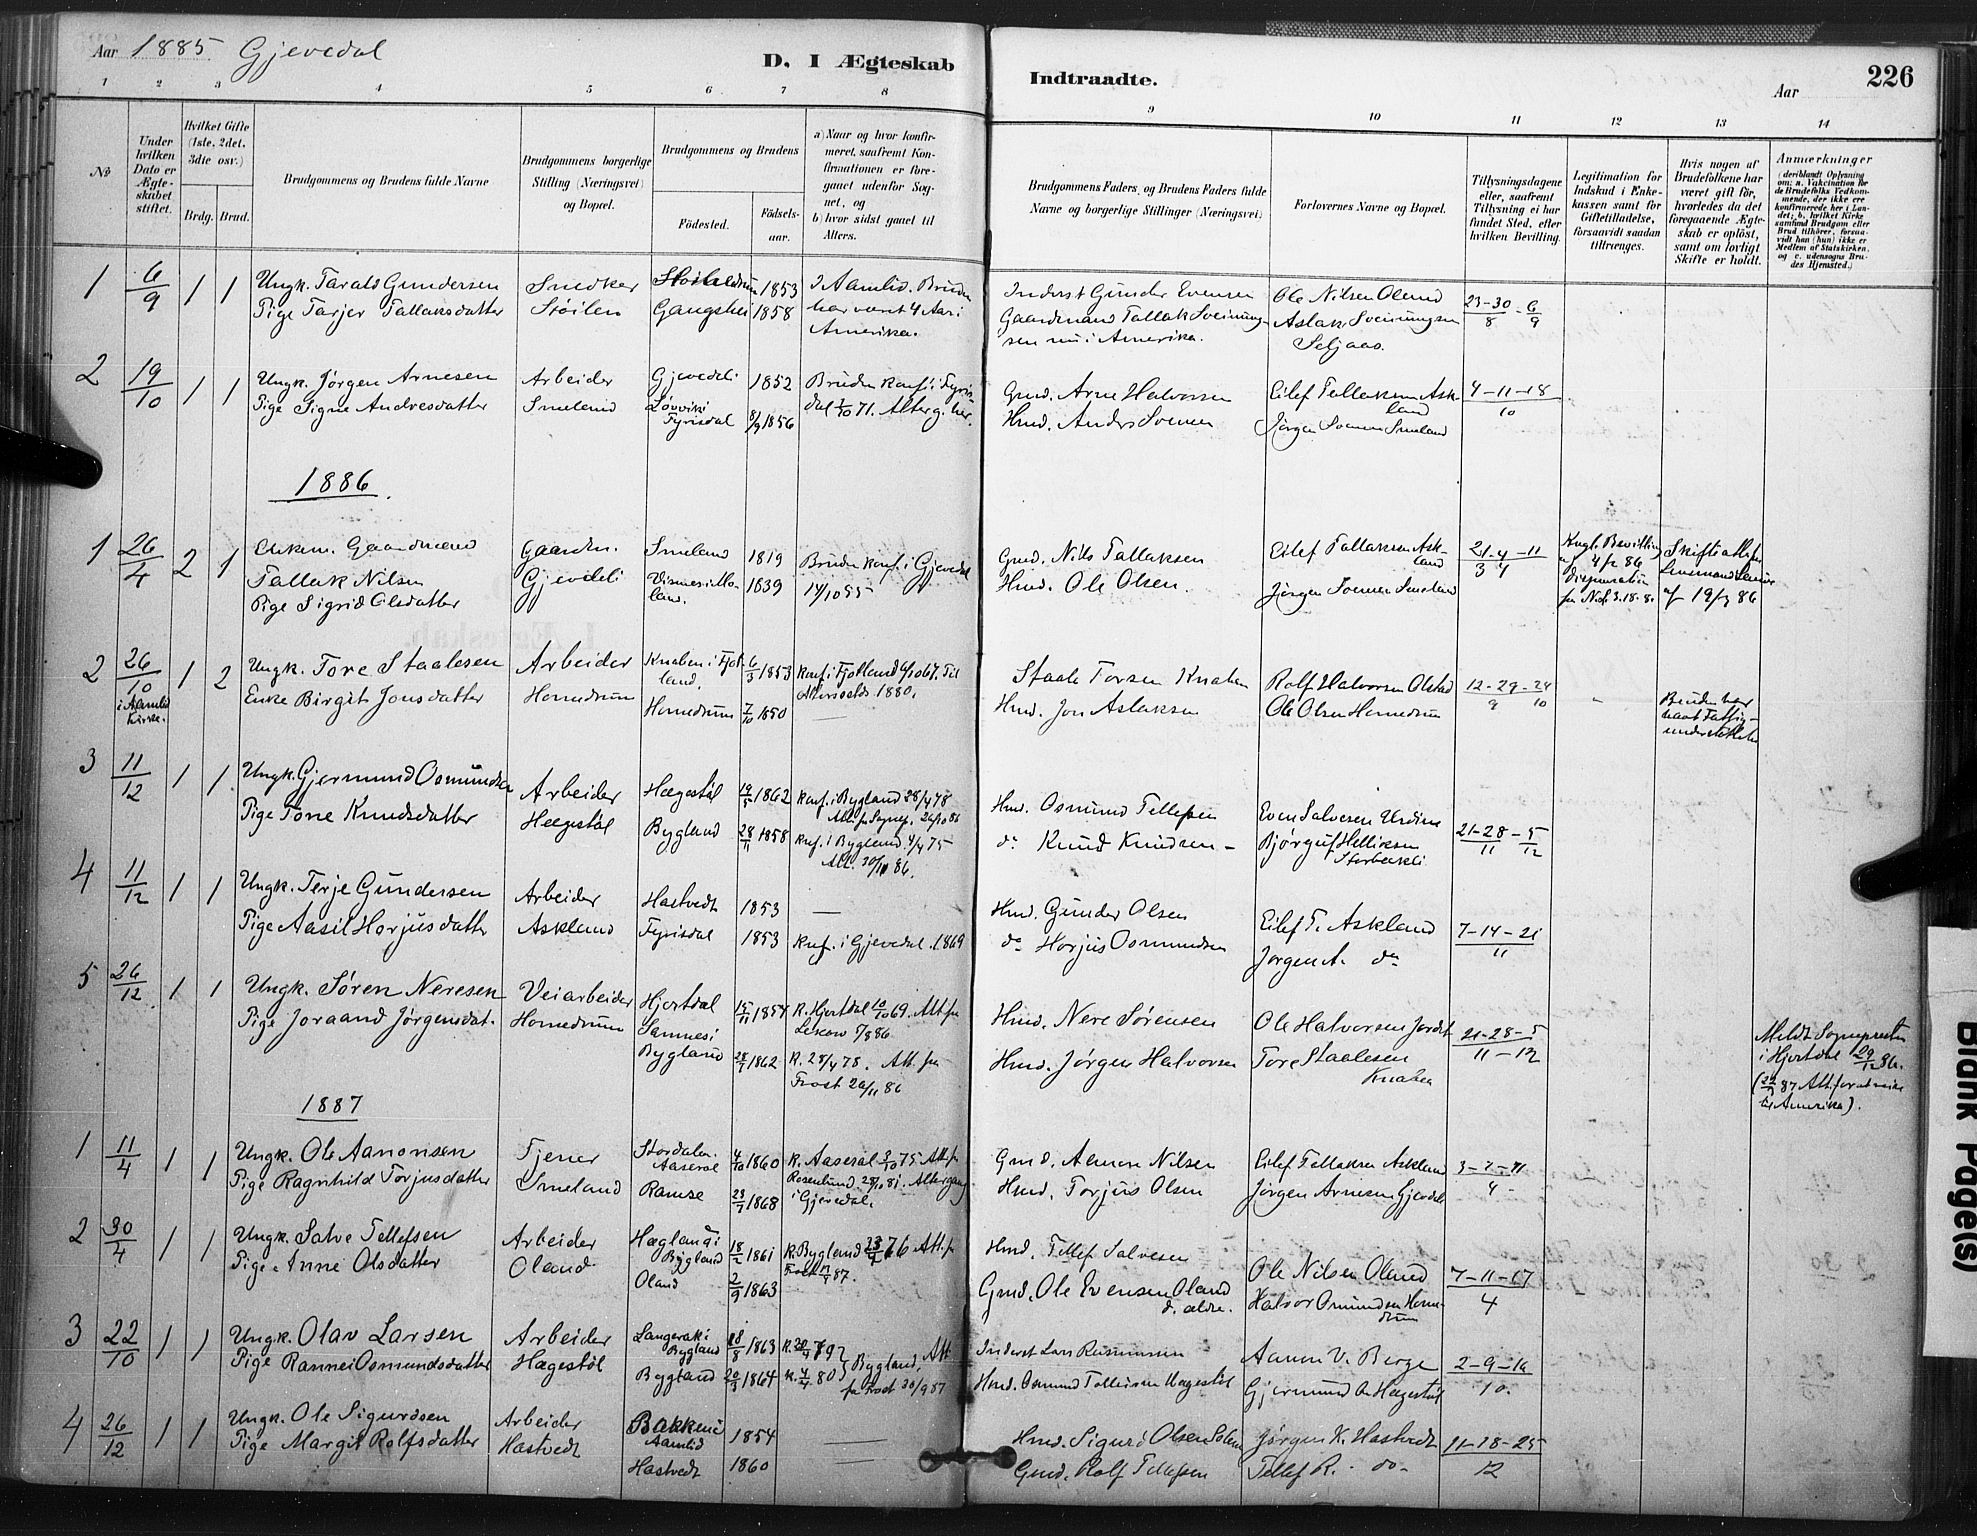 Aar 1885 Gjevedal
D. I Ægteskab
Indtraadte.
Aar
226
1 2 3 4 5 6 7 8 9 10 11 12 13 14
№
Under hvilken Dato er Ægteskabet stiftet.
Hvilket Gifte (1ste, 2det, 3die osv.)
Brdg. Brud.
Brudgommens og Brudens fulde Navne
Brudgommens borgerlige Stilling (Næringsvei) og Bopæl.
Brudgommens og Brudens
Fødested.
Fødselsaar.
a) Naar og hvor konfirmeret, saafremt Konfirmationen er foregaaet udenfor Sognet, og
b) hvor sidst gaaet til Alters.
Brudgommens Faders og Brudens Faders fulde Navne og borgerlige Stillinger (Næringsvei)
Forlovernes Navne og Bopæl.
Tillysningsdagene eller, saafremt Tillysning ei har fundet Sted, efter hvilken Bevilling.
Legitimation for Indskud i Enkekassen samt for Giftetilladelse, forsaavidt saadan tiltrænges.
Hvis nogen af Brudefolkene har været gift før, hvorledes da det foregaaende Ægteskab er opløst, samt om lovligt Skifte er holdt.
Anmærkninger (deriblandt Oplysning om: a. Vakcination for de Brudefolks Vedkommende, der ikke ere konfirmerede her i Landet; b. hvilket Kirkesamfund Brudgom eller Brud tilhører, forsaavidt han (hun) ikke er Medlem af Statskirken, og c. udensogns Brudes Hjemsted.)
1 6/9 1 1 Ungk. Tarald Gundersen Snedker 1853 I Aamlid. Bruden Inderst Gunder Evensen Ole Nilsen Oland 23-30-6
Pige Tarjer Tallaksdatter Støilen Gangshei 1858 har været 4 Aar i Gaardmand Tallak Sveinung- Aslak Sveinungsen 8 9
Amerika. sen nu i Amerika. Seljaas.
2 19/10 1 1 Ungk. Jørgen Arnesen Arbeider Gjevedli 1852 Bruden konf. i Fyris- Gmd. Arne Halvorsen Eilef Tallaksen Ask- 4-11-18
Pige Signe Andresdatter Smeland Løvvik i Fyrisdal 8/9 1856 dal 1/10 71. Alterg. her. Hmd. Anders Sveinsen land 10
Jørgen Svensen Smeland
1886
1 26/4 2 1 Enkem. Gaardmand Gaardm. Smeland 1819 Bruden konf. i Gjevedal Gmd. Nils Tallaksen Eilef Tallaksen Ask- 21-4-11 Kngl. Bevilling
Tallak Nilsen Gjevdeli 1839 Hmd. Ole Olsen. land 3 4 Dispensation
Pige Sigrid Olsdatter Jørgen Svensen Smeland af 19/3 86
2 26/10 1 2 Ungk. Tore Staalesen Arbeider Knaben i Fjot- 6/3 1853 Konf. i Fjotland 6/10 67. Til Staale Torsen Knaben Rolf Halvorsen Olstad 12-29-24
i Aamlid Kirke. Enke Birgit Jonsdatter Homdrum land. Alters sidst 1880. Hmd. Jon Aslaksen Ole Olsen Homedrum 9 10 Bruden har
Homedrum 7/10 1850 havt Fattig-
understøttelse
3 11/12 1 1 Ungk. Gjermund Osmundsen Arbeider Hægestøl 19/5 1862 Konf. i Bygland 28/4 78 Hmd. Osmund Tellefsen Even Salvesen Urdine 21-28-5
Pige Tone Knudsdatter Hægestøl Bygland 28/11 1858 Att. fr. Sognep. 26/10 86 do Knud Knudsen - Bjørguf Helliksen 11 12
Knf. i Bygland 4/4 75
Att. 30/10 86.
4 11/12 1 1 Ungk. Terje Gundersen Arbeider Hastvedt 1853 — Hmd. Gunder Olsen Eilef T. Askland 7-14-21
Pige Aasil Horjusdatter Askland Fyrisdal 1853 Knf. i Gjevedal. 1869 do Horjus Osmundsen Jørgen A. do 11
5 26/12 1 1 Ungk. Søren Neresen Veiarbeider Hjertdal 15/11 1854 K. Hjertdal 10/10 69. Att. fr. Hmd. Nere Sørensen Ole Halvorsen Jordet 21-28-5 Meldt Sognepresten
Pige Joraand Jørgensdat. Homedrum Sannes i 7/8 86 Hmd. Jørgen Halvorsen Tore Staalesen 11-12 i Hjertdal 29/12 86.
Bygland 28/7 1862 K. 28/4 78. Att. fra Knaben 87 Att. for at reise
Frost 26/11 86 til Amerika).
1887
1 11/4 1 1 Ungk. Ole Aanonsen Tjener Stordalen. 4/10 1860 K. Aaseral 3/10 75. Att. fr. Gmd. Aanon Nilsen Eilef Tallaksen Askland 3-7-11
Pige Ragnhild Torjusdatter Smeland Aaseral Rosenlund 28/10 81. Altergang Hmd. Torjus Olsen Jørgen Arnesen Gjevdel 4
Ramse 23/7 1868 i Gjevedal.
2 30/4 1 1 Ungk. Salve Tellefsen Arbeider Hægland i 18/2 1861 K. Bygland 23/4 76 Att. fr. Hmd. Tellef Salvesen Ole Nilsen Oland 7-11-17
Pige Anne Olsdatter Oland Bygland Frost 87. Gmd. Ole Evensen Oland Halvor Osmundsen Home- 4
Oland 2/9 1863 d. ældre. drum
3 22/10 1 1 Ungk. Olav Larsen Arbeider Langerak i 18/8 1863 K. 20/4 79 Inderst Lars Rasmussen Aanon V. Berge 2-9-16
Pige Rannei Osmundsdatter Hægestøl Bygland Bygland. Att. Hmd. Osmund Tellefsen Hægestøl Gjermund O. Hægestøl 10
Bygland 20/3 1864 K. 4/4 80 fr. Frost 30/9 87
4 26/12 1 1 Ungk. Ole Sigurdsen Arbeider Bakken i 1854 — Hmd. Sigurd Olsen Jørgen K. Hastvedt 11-18-25
Pige Margit Rolfsdatter Hastvedt Aamlid — Gmd. Rolf Tellefsen Tellef R. do 12
Hastvedt 1860
Blank Page(s)